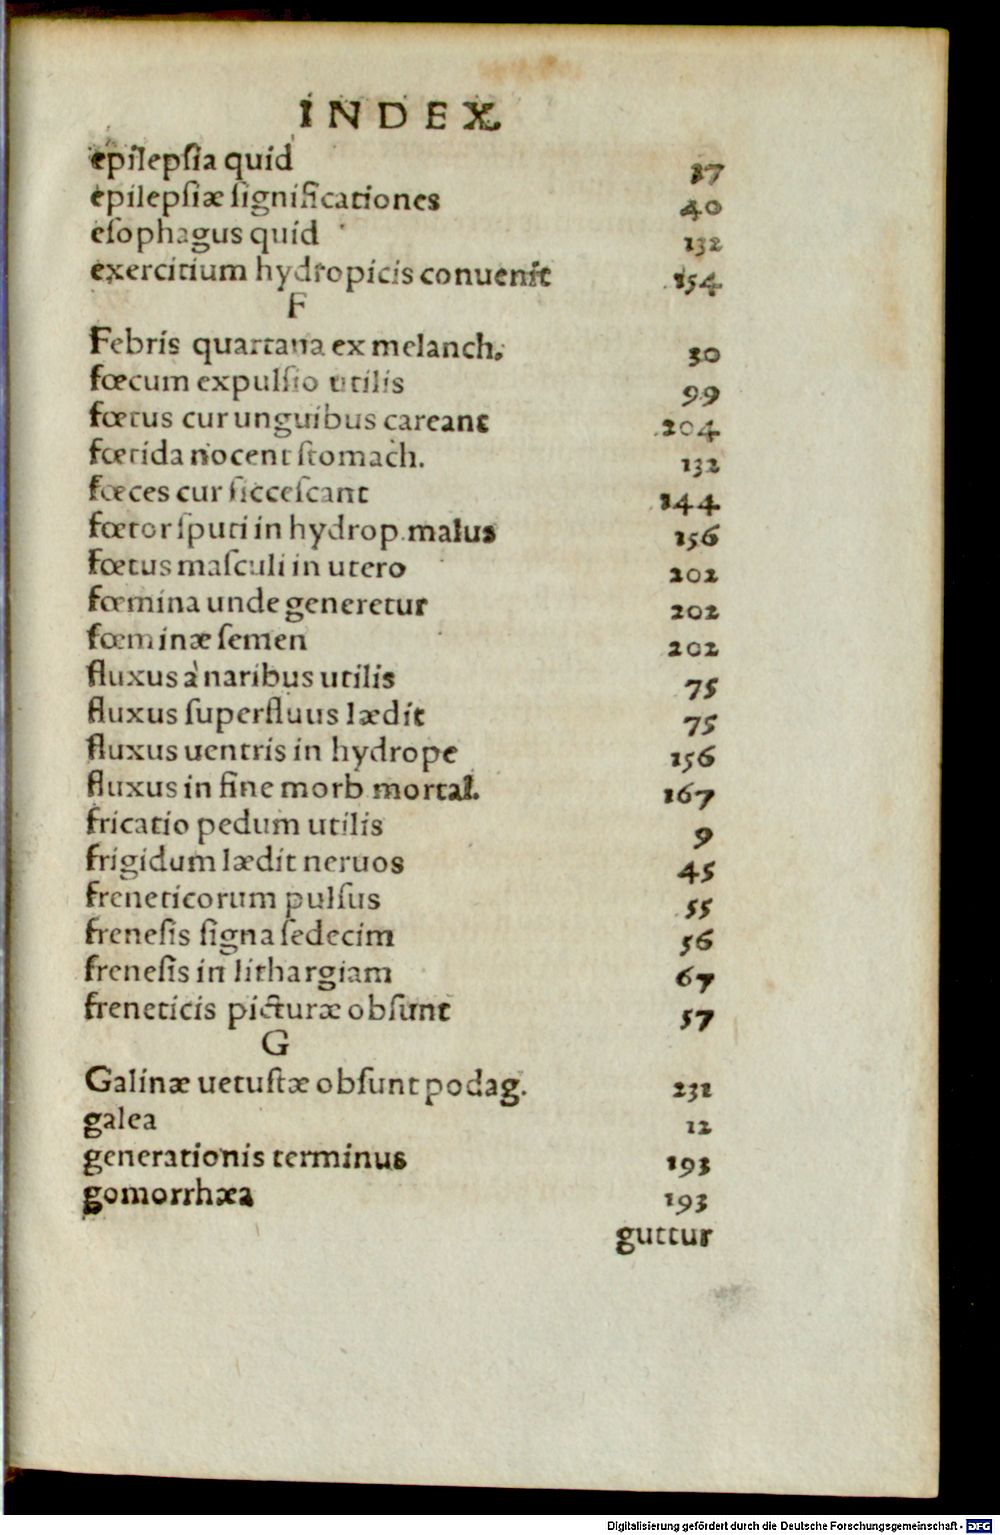 INDEX.
epilepſia quid 37
epilepſiæ ſignificationes 40
eſophagus quid 132
exercitium hydropicis conuenit 154
F
Febris quartana ex melanch. 30
fœcum expulſio utilis 99
fœtus cur unguibus careant 204
fœtida nocent ſtomach. 132
fœces cur ſicceſcant 144
fœtor ſputi in hydrop. malus 156
fœtus maſculi in utero 202
fœmina unde generetur 202
fœminæ ſemen 202
fluxus à naribus utilis 75
fluxus ſuperfluus lædit 75
fluxus uentris in hydrope 156
fluxus in fine morb mortal. 167
fricatio pedum utilis 9
frigidum lædit neruos 45
freneticorum pulſus 55
freneſis ſigna ſedecim 56
freneſis in lithargiam 67
freneticis picturæ obſunt 57
G
Galinæ uetuſtæ obſunt podag. 231
galea 12
generationis terminus 193
gomorrhæa 193
guttur
Digitalisierung gefördert durch die Deutsche Forschungsgemeinschaft - DFG